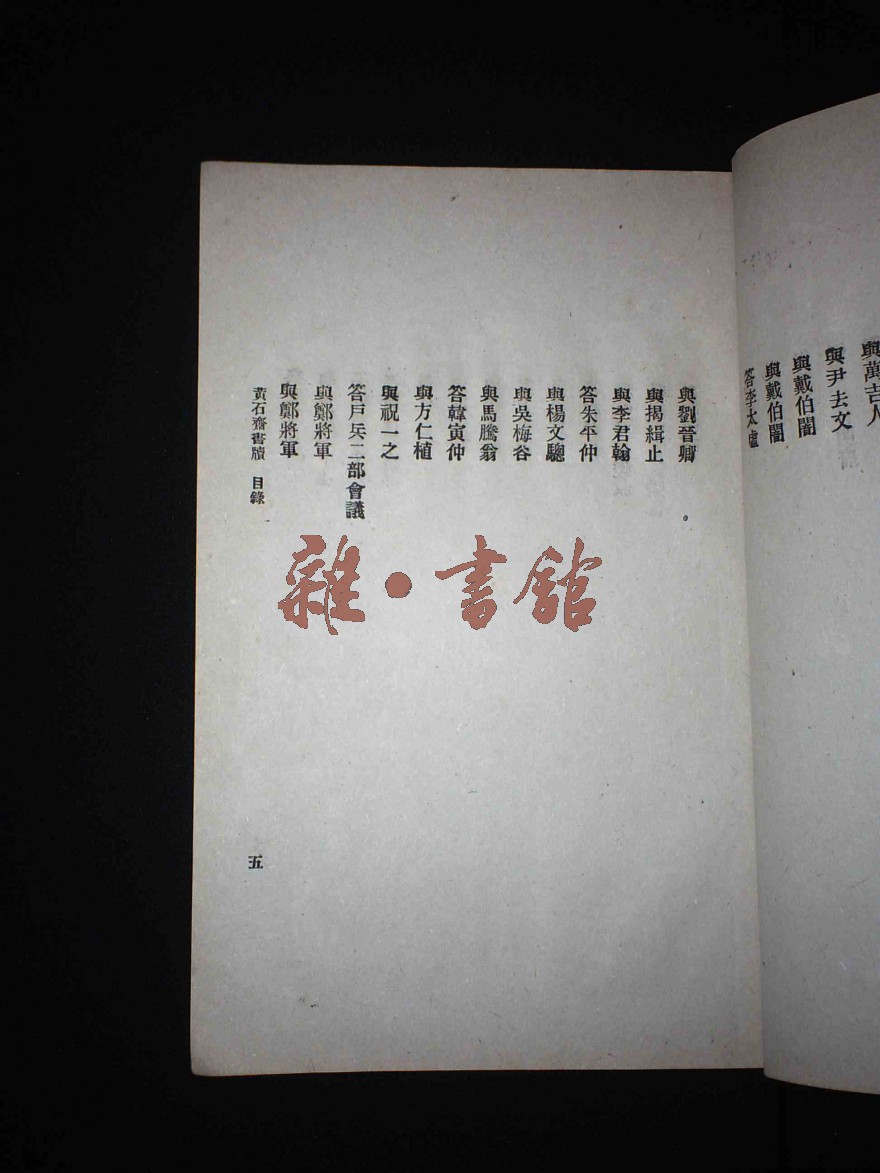 與萬吉人
與尹去文
與戴伯闇
與戴伯闇
答李太虛
與劉晉卿
與揭緝止
與李君翰
答朱平仲
與楊文驄
與吳梅谷
與馬騰翁
答韓寅仲
與方仁植
與祝一之
答戶兵二部會議
與鄭將軍
與鄭將軍
黃石齋書牘 目錄
五
雜·書館